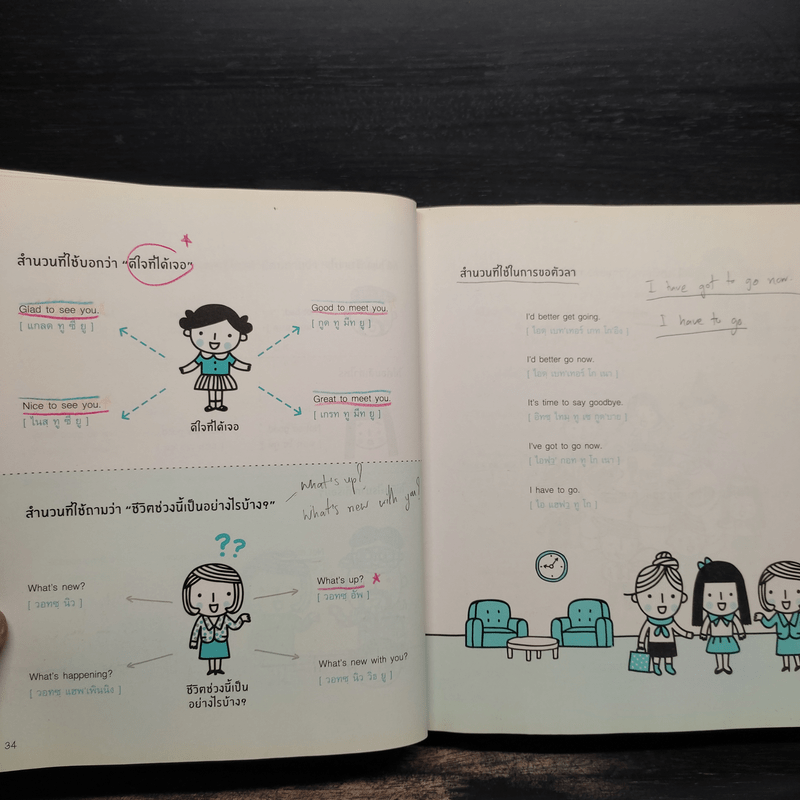 สำนวนที่ใช้บอกว่า “ดีใจที่ได้เจอ”
Glad to see you.
[ แกลด ทู ซี ยู ]
Good to meet you.
[ กูด ทู มีท ยู ]
Nice to see you.
[ ไนส ทู ซี ยู ]
Great to meet you.
[ เกรท ทู มีท ยู ]
ดีใจที่ได้เจอ
สำนวนที่ใช้ถามว่า “ชีวิตช่วงนี้เป็นอย่างไรบ้าง?”
what's up?
What's new with you?
??
What's new?
[ วอทซฺ นิว ]
What's up?
[ วอทซฺ อัพ ]
What's happening?
[ วอทซฺ แฮพเพินนิง ]
What's new with you?
[ วอทซฺ นิว วิธ ยู ]
ชีวิตช่วงนี้เป็น
อย่างไรบ้าง?
34
สำนวนที่ใช้ในการขอตัวลา
I have got to go now.
I have to go
I'd better get going.
I'd better go now.
It's time to say goodbye.
I've got to go now.
I have to go.
[ ไอ แฮฟวฺ ทู โก ]